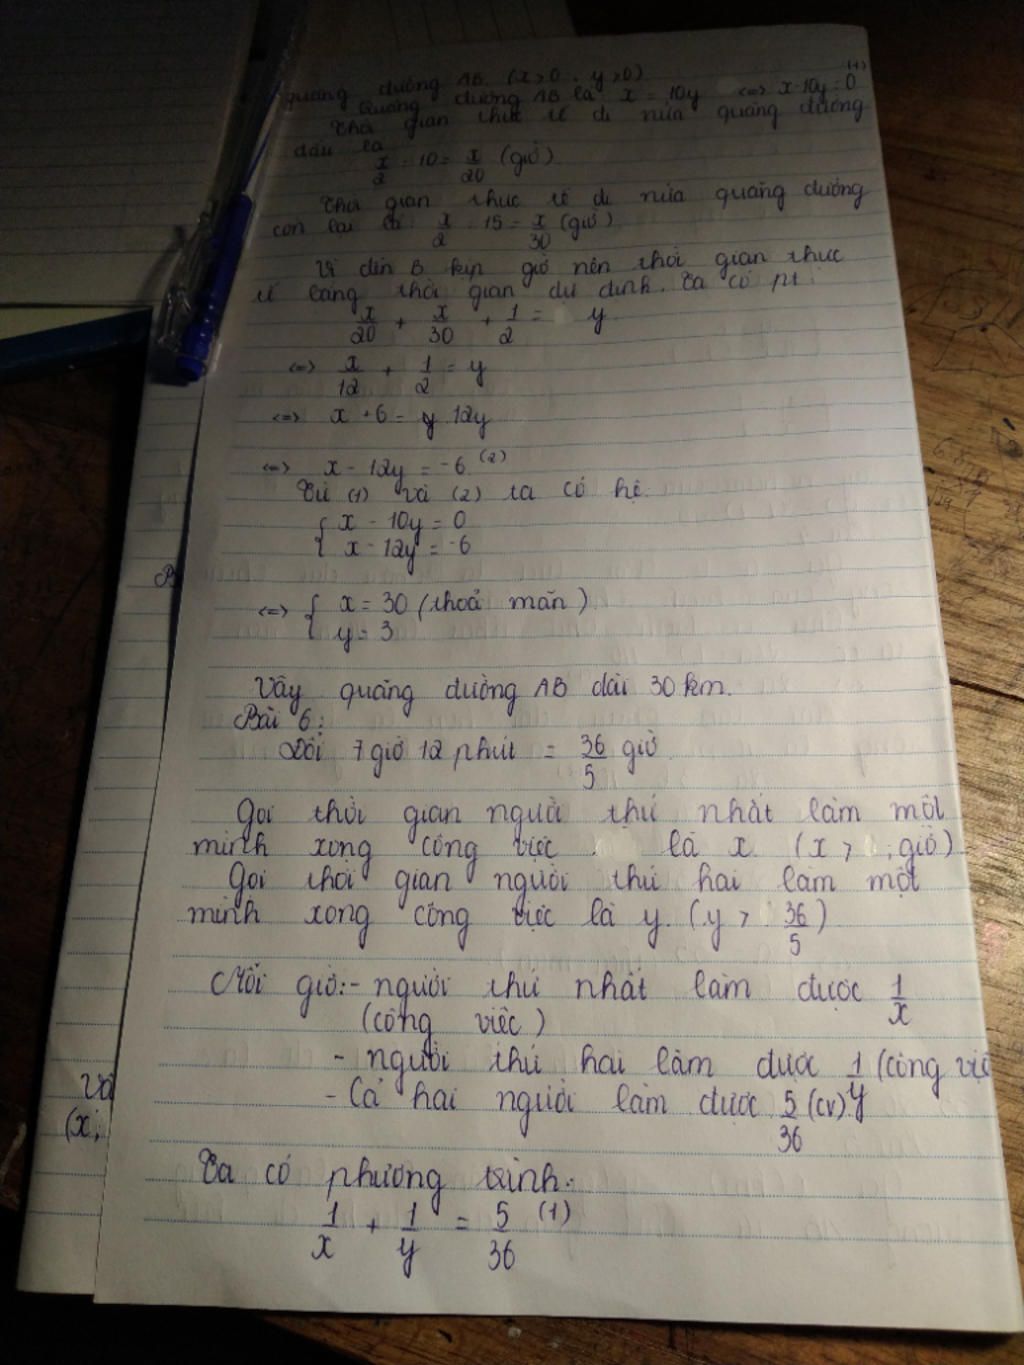 quãng đường AB (x>0, y>0)
Quãng đường AB là x = 10y <=> x-10y=0 (1)
Thời gian thực tế đi nửa quãng đường
đầu là
x/2 : 10 = x/20 (giờ)
Thời gian thực tế đi nửa quãng đường
còn lại là: x/2 : 15 = x/30 (giờ)
Vì đến B kịp giờ nên thời gian thực
tế bằng thời gian dự định. Ta có pt:
x/20 + x/30 + 1/2 = y
<=> x/12 + 1/2 = y
<=> x + 6 = 12y
<=> x - 12y = -6 (2)
Từ (1) và (2) ta có hệ:
{ x - 10y = 0
x - 12y = -6
<=> { x = 30 (thoả mãn)
y = 3
Vậy quãng đường AB dài 30 km.
Bài 6:
Đổi 7 giờ 12 phút = 36/5 giờ
Gọi thời gian người thứ nhất làm một
mình xong công việc là x (x > , giờ)
Gọi thời gian người thứ hai làm một
mình xong công việc là y. (y > 36/5)
Mỗi giờ: - người thứ nhất làm được 1/x
(công việc)
- người thứ hai làm được 1/y (công việc
- Cả hai người làm được 5/36 (cv)
Ta có phương trình:
1/x + 1/y = 5/36 (1)
Và
(x;